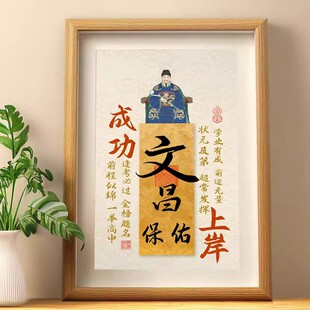 文昌
保佑
成功
上岸
学业有成 前途无量
状元及第 超常发挥
逢考必过 金榜题名
前程似锦 一举高中